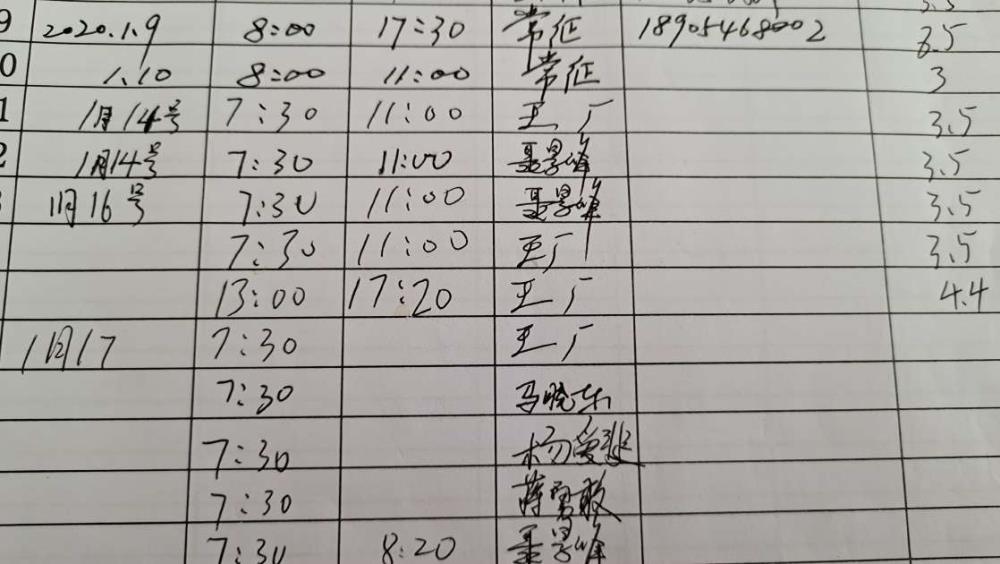 9 2020.1.9 8:00 17:30 常征 18905468002 3.5
0 1.10 8:00 11:00 常征 3
1 1月14号 7:30 11:00 王广 3.5
2 1月14号 7:30 11:00 聂景峰 3.5
1月16号 7:30 11:00 聂景峰 3.5
7:30 11:00 王广 3.5
13:00 17:20 王广 4.4
1月17 7:30 王广
7:30 马晓东
7:30 杨爱
7:30 蒋勇敢
7:30 8:20 聂景峰